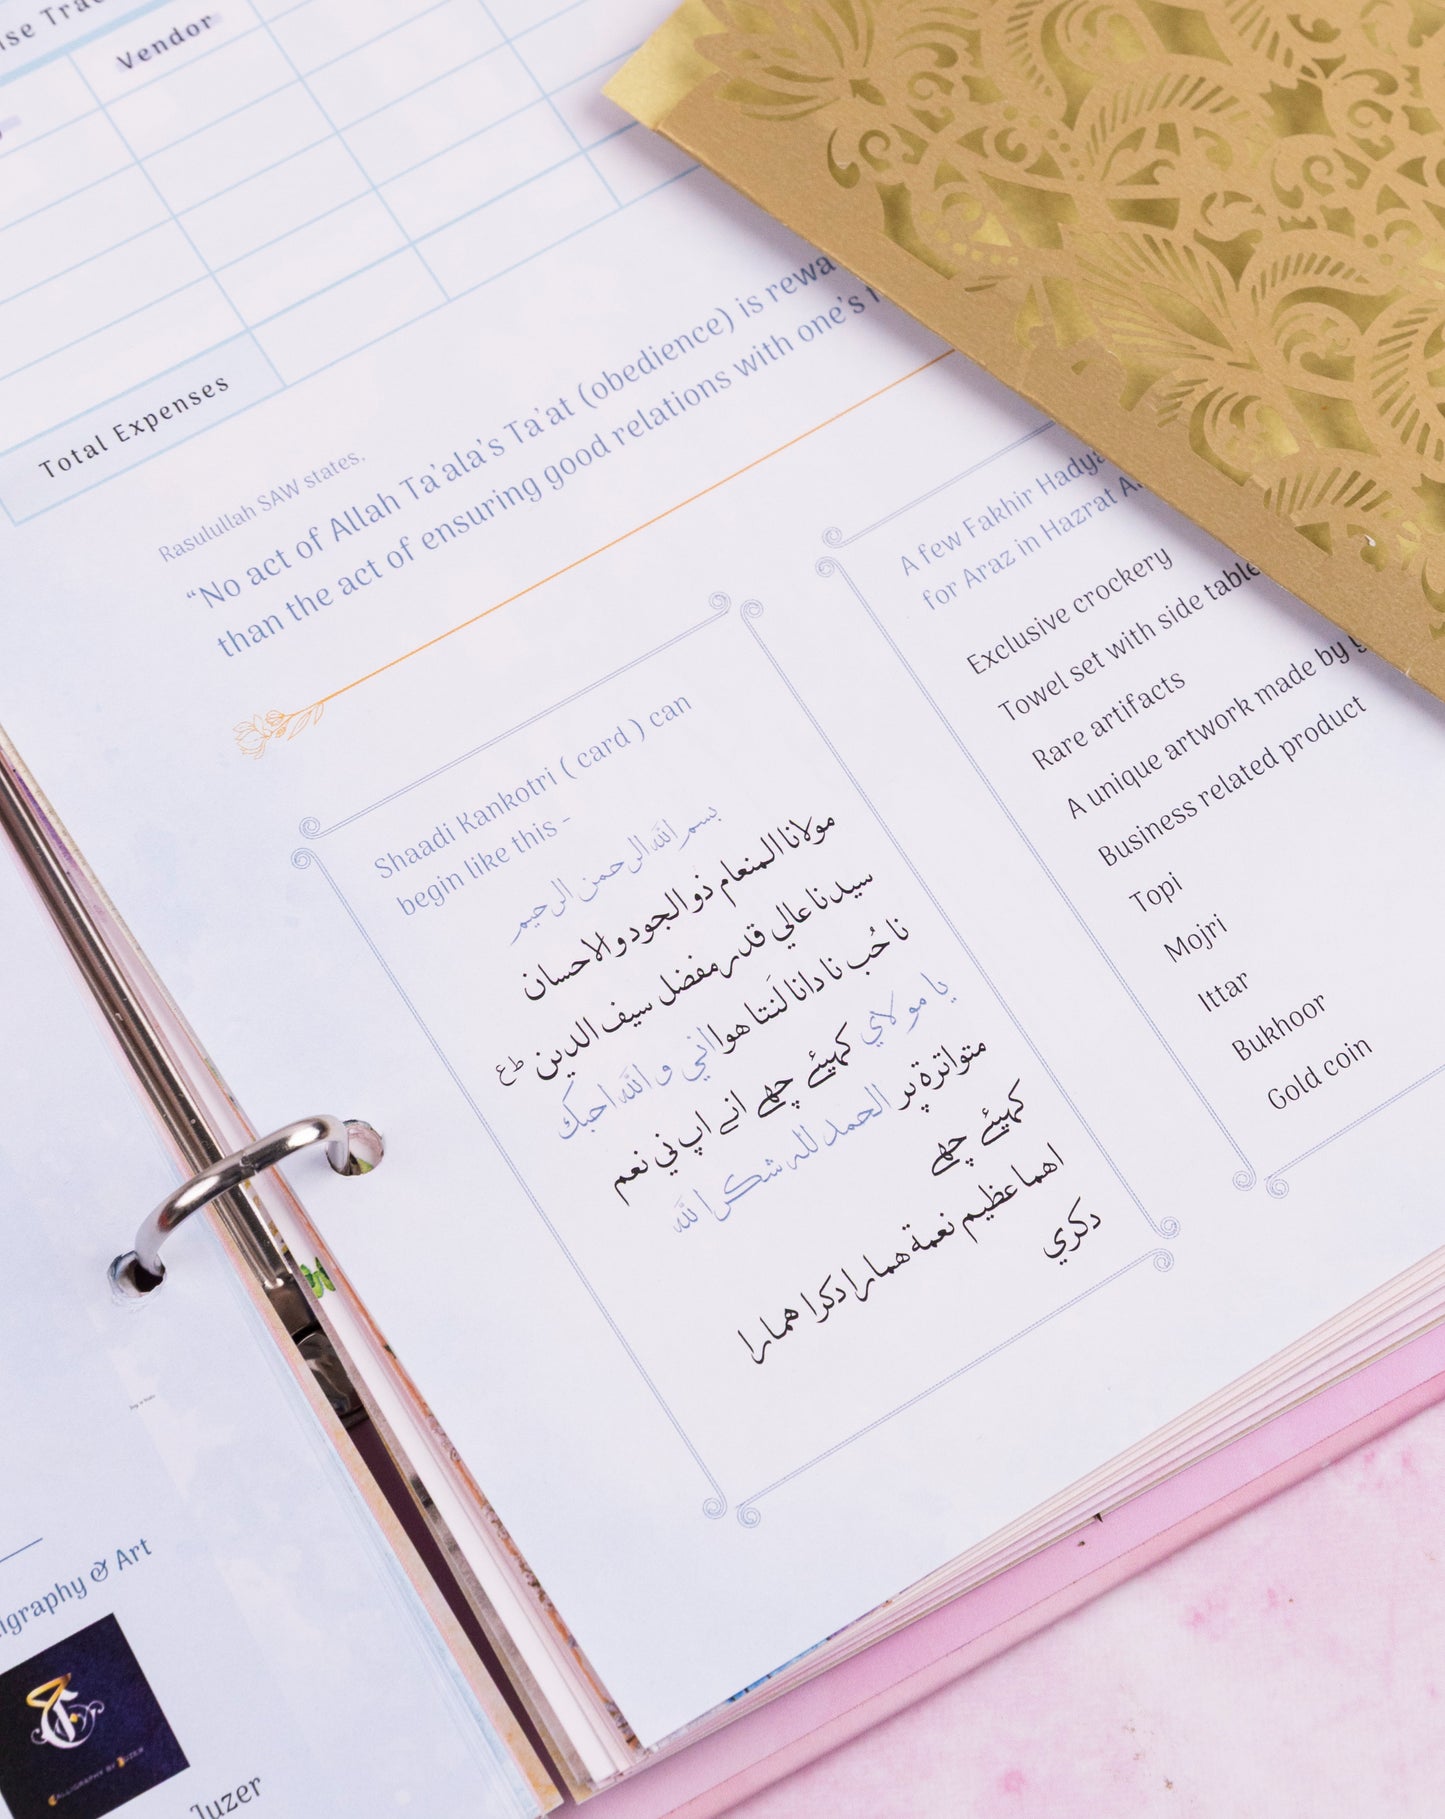 Vendor
Total Expenses
Rasulullah SAW states,
“No act of Allah Ta’ala’s Ta’at (obedience) is
than the act of ensuring good relations with one’s
Shaadi Kankotri ( card ) can
begin like this -
بسم الله الرحمن الرحيم
مولانا المنعام ذو الجود والاحسان
سيدنا عالي قدر مفضل سيف الدين طع
نا حُب نا دانا لَنتا هوا اني و الله احبك
يا مولاي كهيئے چھے انے اپ ني نعم
متواترة پر الحمد لله شكرا لله
كهيئے چھے
اهما عظيم نعمة همارا دكرا همارا
دكري
A few Fakhir
for Araz in Hazrat
Exclusive crockery
Towel set with side table
Rare artifacts
A unique artwork made by
Business related product
Topi
Mojri
Ittar
Bukhoor
Gold coin
& Art
CALLIGRAPHY BY JUZER
Juzer